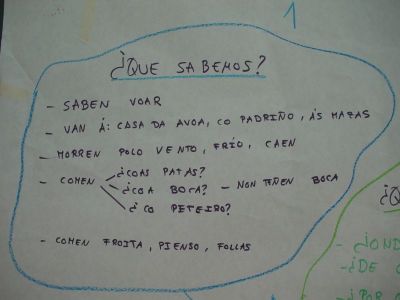 1
¿QUE SABEMOS?
- SABEN VOAR
- VAN Á: CASA DA AVOA, CO PADRIÑO, ÁS MAZAS
- MORREN POLO VENTO, FRÍO, CAEN
- COMEN ¿COAS PATAS?
¿COA BOCA? - NON TEÑEN BOCA
¿CO PETEIRO?
- COMEN FROITA, PIENSO, FOLLAS
¿Q
- ¿OND
- ¿DE
- ¿POR